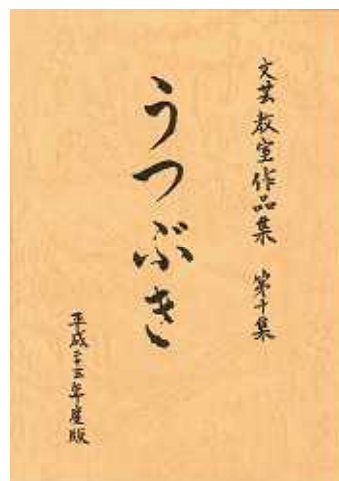 文芸教室作品集 第十集
うつぶき
平成二十五年度版